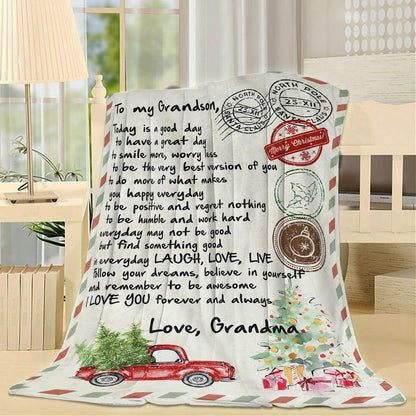 To my Grandson,
NORTH POLE
23-XII
SANTA CLAUS
NORTH POLE
23-XII
SANTA CLAUS
Merry Christmas!
Today is a good day
to have a great day
to smile more, worry less
to be the very best version of you
to do more of what makes
you happy everyday
to be positive and regret nothing
to be humble and work hard
everyday may not be good
but find something good
in everyday LAUGH, LOVE, LIVE
follow your dreams, believe in yourself
and remember to be awesome
I LOVE YOU forever and always
Love, Grandma